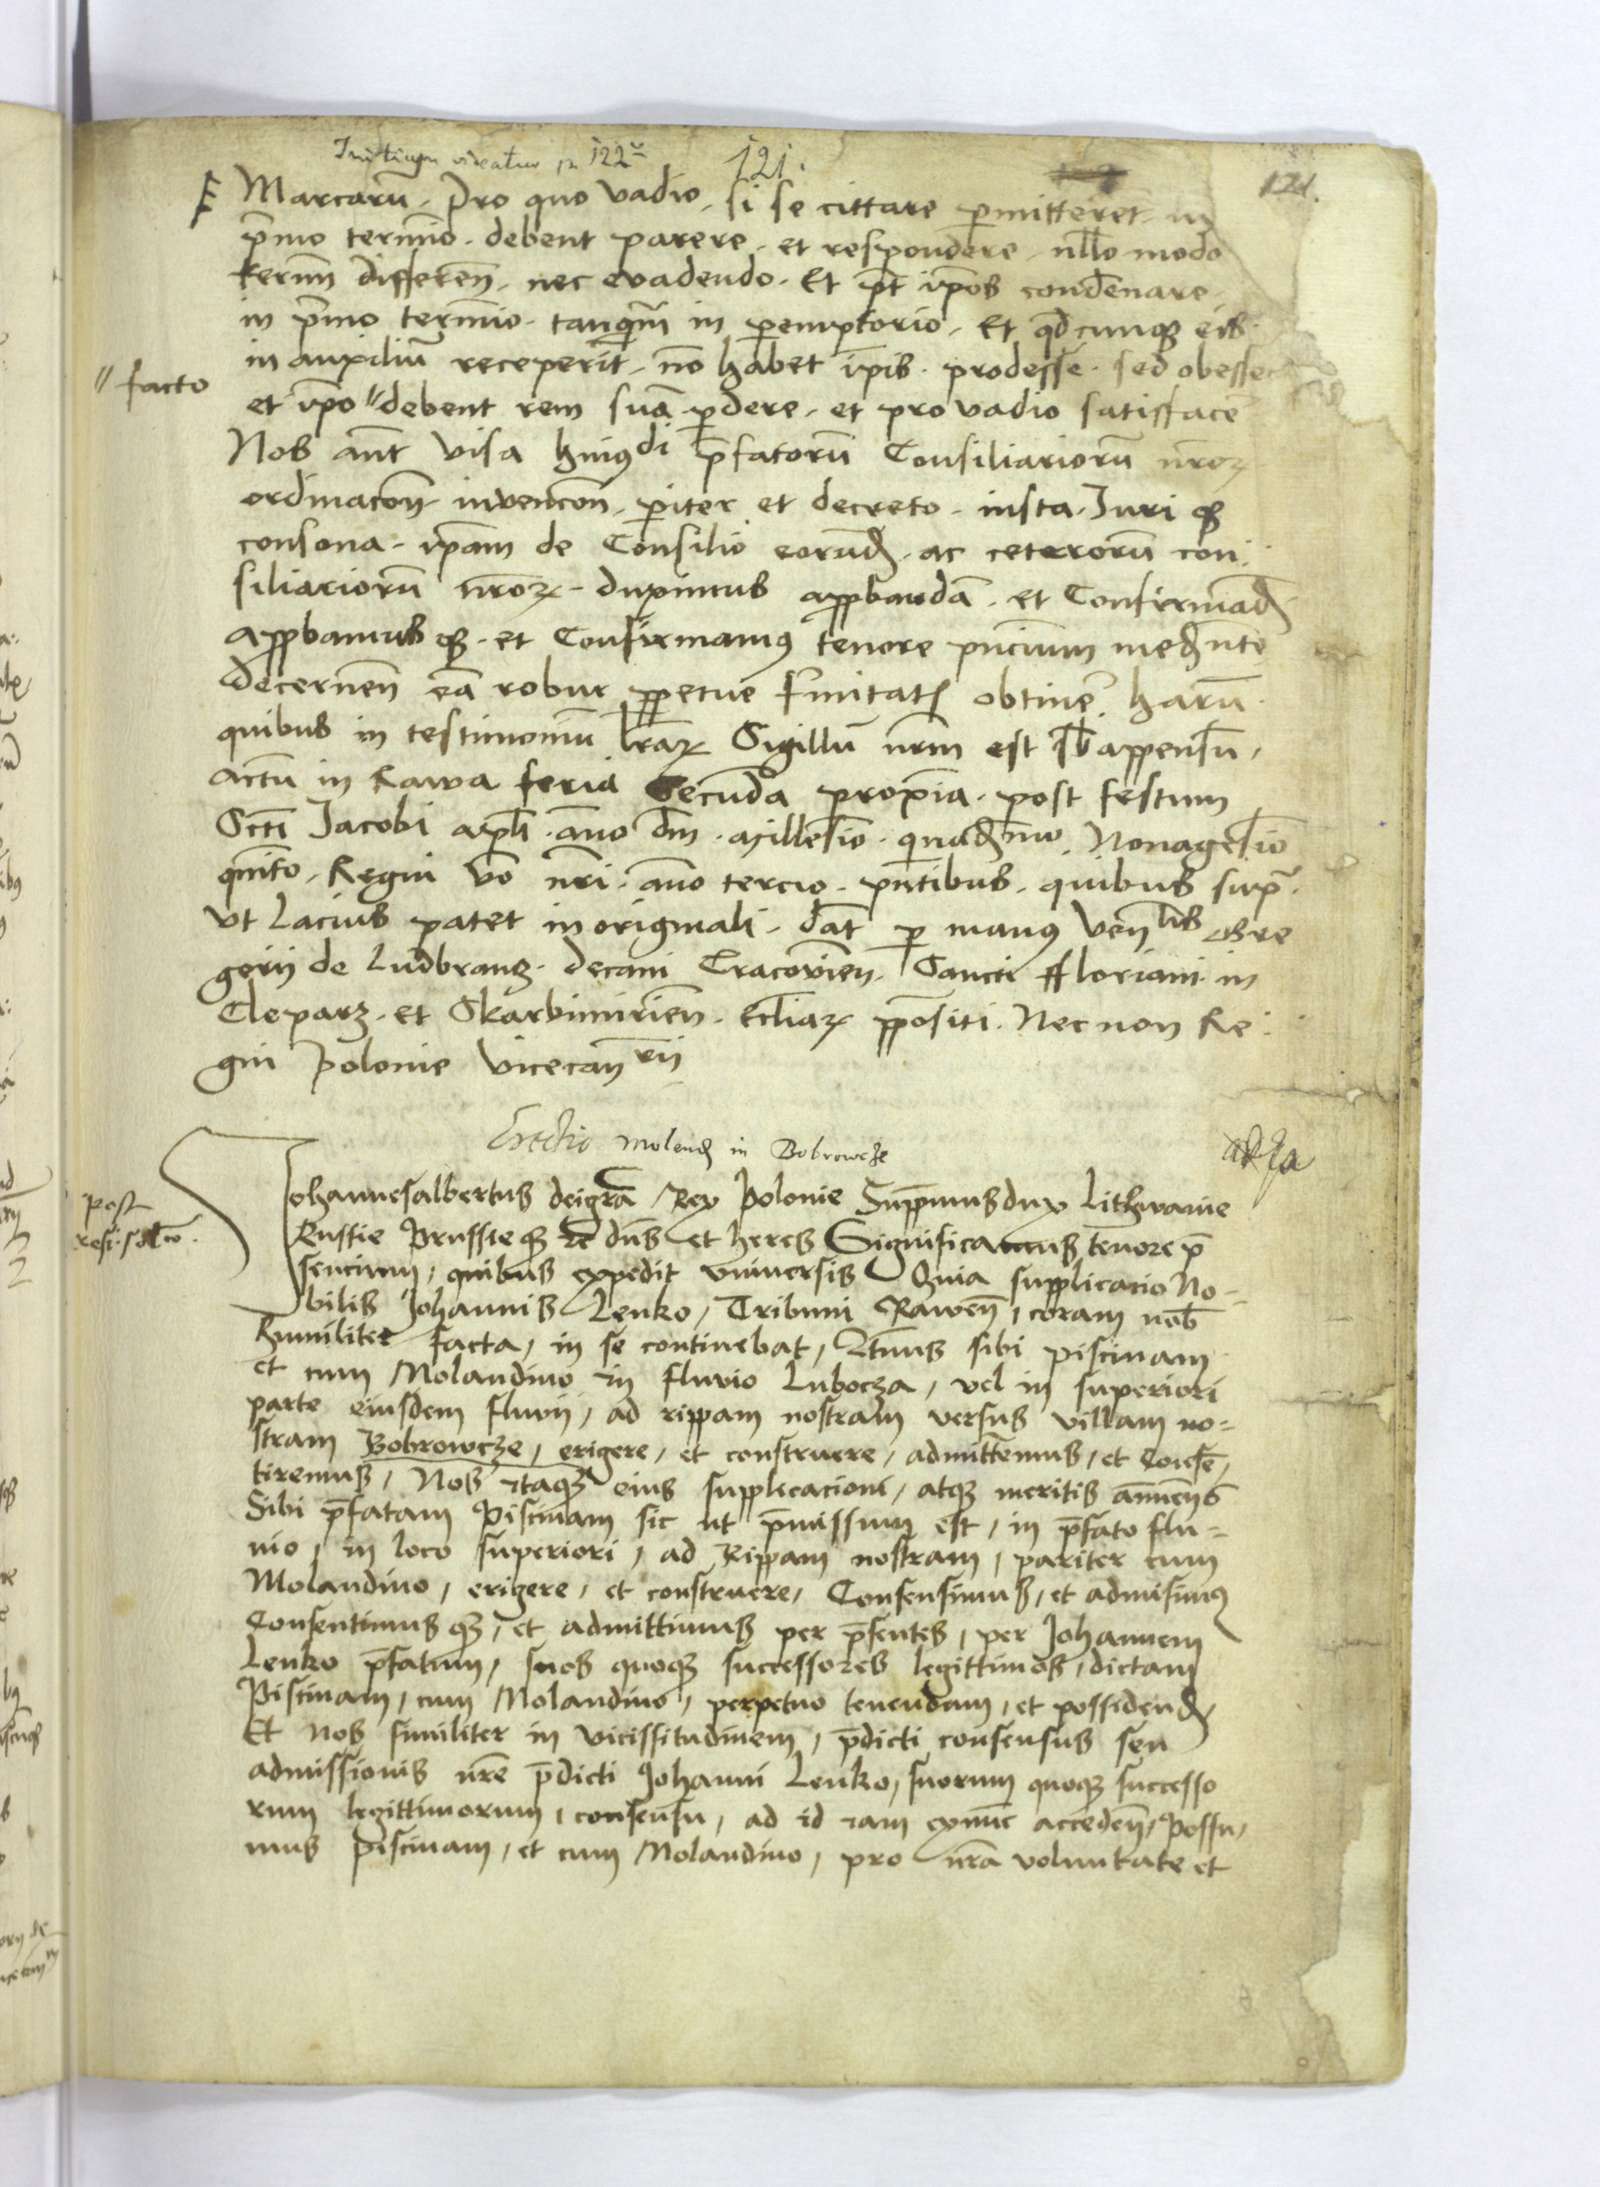 Initium videatur p 122
121.
121.
Marcarū. Pro quo vadio. si se cittare p̄mitteret in
p̄mo termīo. debent parere. et respondere. nllo modo
termī differen̄. nec evadendo. Et p̄t ip̄os condēnare.
in p̄mo termīo. tanq̄m in peremptorio. Et qd cunq̃ eis
in auxiliū receperīt. nō habet ip̄is. prodesse. sed obesse
"facto
et ip̄o" debent rem suā p̄dere. et pro vadio satisfacē
Nos aūt visa huiꝰdi p̄fatorū Consiliariorū nr̄oꝝ
ordinacōn̄ invencōn̄. pīter et decreto. iusta. Iuri q̃
consona. ip̄am de Consilio eorūd̄. ac ceterorū con:
siliariorū nr̄oꝝ. duximus appbandā. et Confirmād̄
appbamus q̃. et Confirmamꝰ tenore pn̄cium med̄nte
Decernen̄ eā robur ppetue firmitatꝭ obtinē. harū
quibus in testimoniū lr̄aꝝ Sigillū nr̄m est sb̄appensū.
Actū in Rawa feria Secūda proxīa. post festum
Scti Iacobi apl̄i. āno dm̄. Millesīo. quad̄mo. Nonagesīo
qnīto. Regni vo nr̄i. āno tercio. pn̄tibus. quibus sup̄.
Vt Lacius patet in originali. dat̄ p manꝰ Ven̄lis Gre
gorii de Ludbrancz. decani Cracovien̄. Sancti Floriani. in
Cleparz. et Skarbimirien̄. Eccl̄iaꝝ ppositi. Nec non Re:
gni Polonie Vicecan̄rii
Erectio Molend̄ in Bobrowcze
Post
Johannesalbertus deigrā Rex Polonie Suppmusdux Lithwanie
Russie Prussieq̃ et dn̄s et heres Significamus tenore p̄
sencium, quibus expedit vniversis Quia supplicacio No-
bilis Johannis Lenko, Tribuni Rawen̄, coram nob̄
humiliter facta, in se continebat, Qtnus sibi piscinam
et cum Molandino in fluvio Lubocza, vel in superiori
parte eiusdem fluvii, ad rippam nostram versus villam no=
stram Bobrowcze, erigere, et construere, admittemus, et Consē,
tiremus, Nos itaq̃ eius supplicacioni, atq̃ meritis annuen̄s
Sibi p̄fatam Piscinam sic ut p̄missum est, in p̄fato flu=
vio, in loco superiori, ad Rippam nostram, pariter cum
Molandino, erigere, et construere, Consensimus, et admisimꝰ
Consentimus q̃, et admittimus per p̄sentes, per Johannem
Lenko p̄fatum, suos quoq̃ successores legittimos, dictam
Piscinam, cum Molandino, perpetuo tenendam, et possidend̄
Et Nos similiter in vicissitudinem, p̄dicti consensus seu
admissionis nr̄e p̄dicti Johanni Lenko, suorum quoq̃ successo
rum legittimorum, consensu, ad id iam exnūc acceden̄, Possu,
mus piscinam, et cum Molandino, pro nr̄a voluntate et